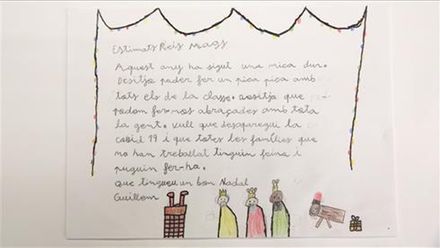 Estimats Reis Mags
Aquest any ha sigut una mica dur.
Desitjo poder fer un pica pica amb
tots els de la classe. Desitjo que
podem fer-nos abraçades amb tota
la gent. vull que desaparegui la
covid 19 i que totes les famílies que
no han treballat tinguin feina i
puguin fer-ha.
Que tingueu un bon Nadal
Guillem